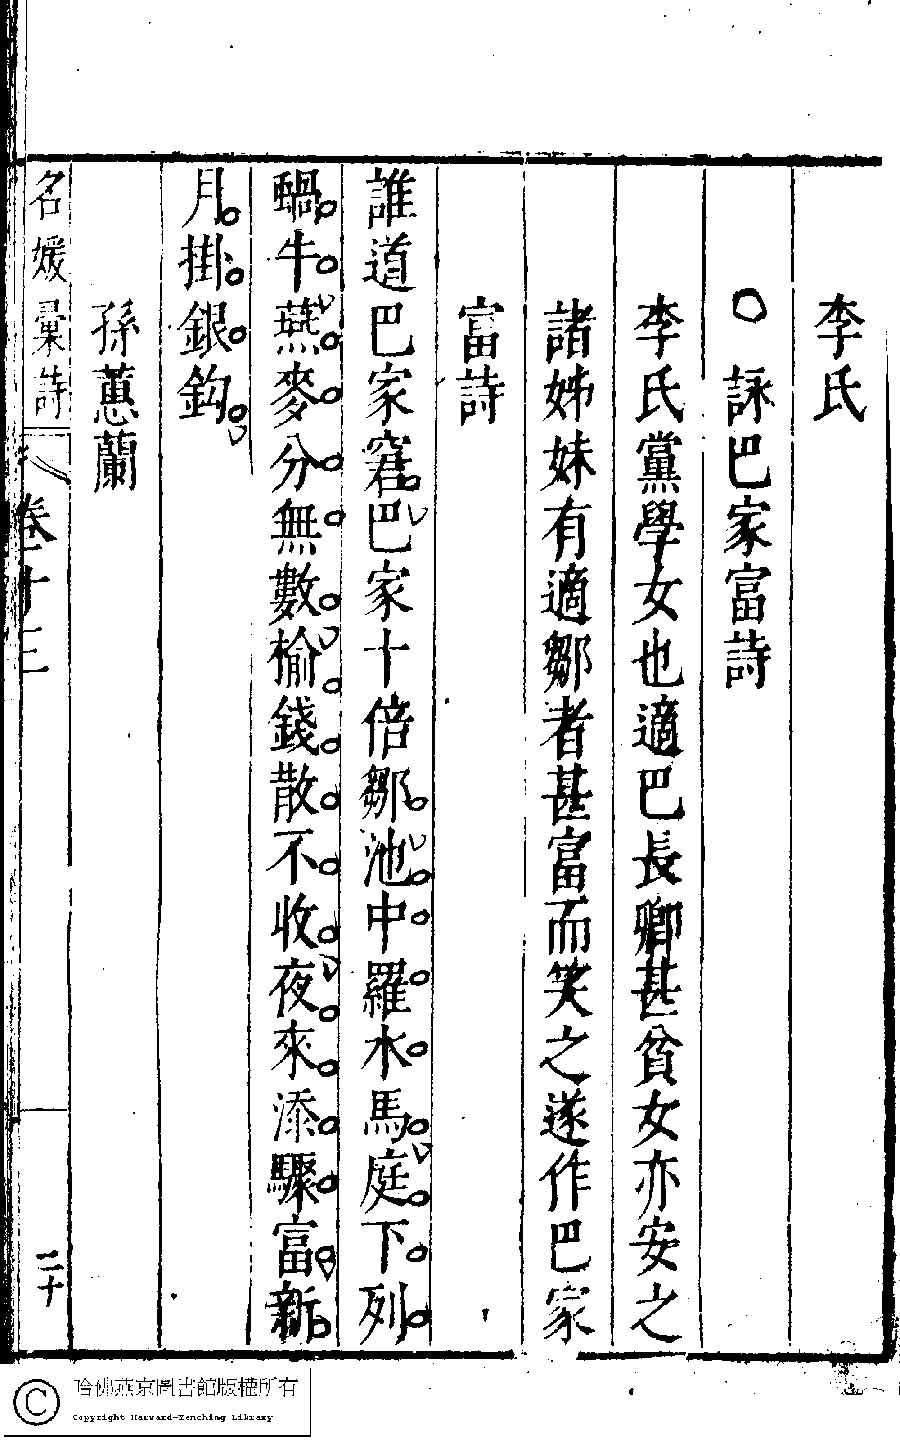 李氏
○詠巴家富詩
李氏黨學女也適巴長卿甚貧女亦安之
諸姊妹有適鄒者甚富而笑之遂作巴家
富詩
誰道巴家窘巴家十倍鄒池中羅水馬庭下列
蝸牛燕麥分無數榆錢散不收夜來添驟富新
月掛銀鈎
孫蕙蘭
名媛彙詩
卷十三
二十
哈佛燕京圖書館版權所有
Copyright Harvard-Yenching Library